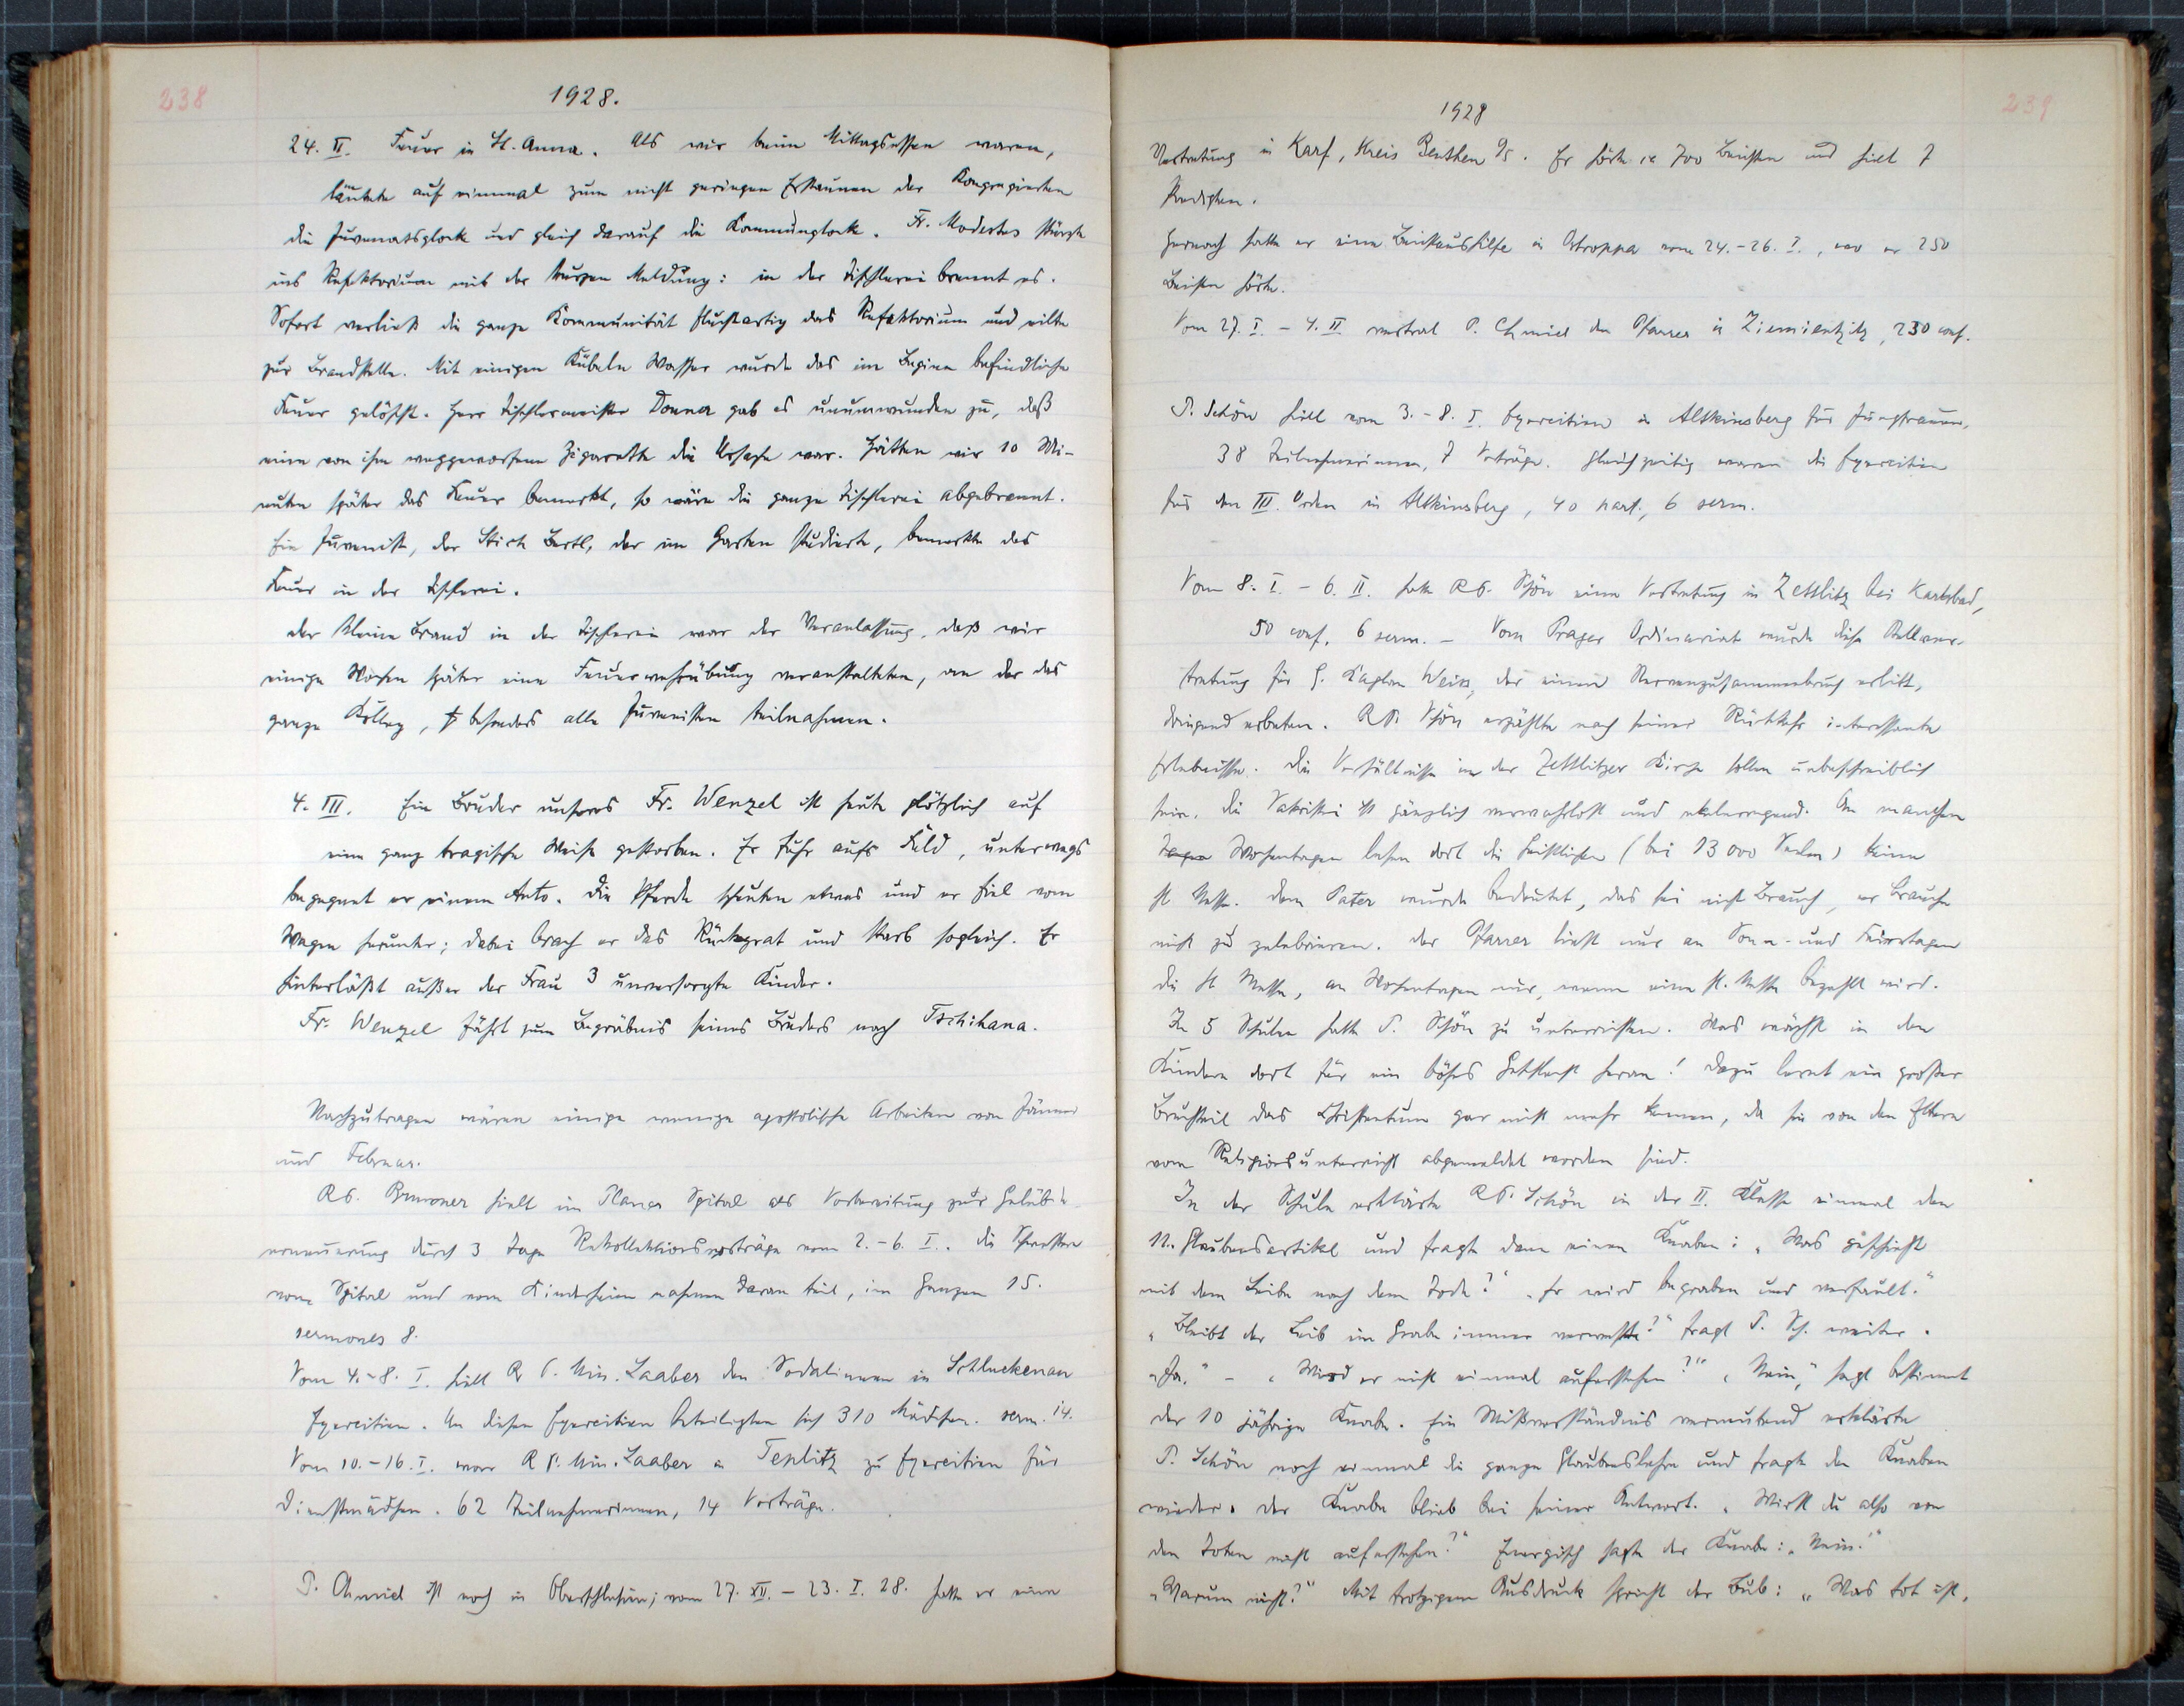 238
1928.
24. II. Feuer in St. Anna. Als wir beim Mittagessen waren,
läutete auf einmal zum nicht geringen Erstaunen der Kongregierten
die Juvenatsglocke und gleich darauf die Kommunglocke. Fr. Modestus stürzte
ins Refektorium mit der kurzen Meldung: in der Tischlerei brennt es.
Sofort verließ die ganze Kommunität fluchtartig das Refektorium und eilte
zur Brandstelle. Mit einigen Kübeln Wasser wurde das im Beginn befindliche
Feuer gelöscht. Herr Tischlermeister Donner gab es unumwunden zu, daß
eine von ihm weggeworfene Zigarette die Ursache war. Hätten wir 10 Mi-
nuten später das Feuer bemerkt, so wäre die ganze Tischlerei abgebrannt.
Ein Juvenist, der Stich Bertl, der im Garten studierte, bemerkte das
Feuer in der Tischlerei.
Der kleine Brand in der Tischlerei war der Veranlassung, daß wir
einige Wochen später eine Feuerwehrübung veranstalteten, an der das
ganze Kolleg, besonders alle Juvenisten teilnahmen.
4. III. Ein Bruder unseres Fr. Wenzel ist heute plötzlich auf
eine ganz tragische Weise gestorben. Er fuhr aufs Feld, unterwegs
begegnet er einem Auto. Die Pferde scheuten etwas und er fiel vom
Wagen herunter; dabei brach er das Rückgrat und starb sogleich. Er
hinterläßt außer der Frau 3 unversorgte Kinder.
Fr. Wenzel fährt zum Begräbnis seines Bruders nach Tschihana.
Nachzutragen wären einige wenige apostolische Arbeiten von Jänner
und Februar.
R P. Brunner hielt im Planer Spital als Vorbereitung zur Gelübde-
erneuerung durch 3 Tage Rekollektionsvorträge vom 2.-6. I. Die Schwestern
vom Spital und vom Kinderheim nahmen daran teil, im Ganzen 15.
sermones 8.
Vom 4.-8. I. hielt R P. Min. Laaber den Sodalinnen in Schluckenau
Exercitien. An diesen Exercitien beteiligten sich 310 Mädchen. serm. 14.
Vom 10.-16. I. war R P. Min. Laaber in Teplitz zu Exercitien für
Dienstmädchen. 62 Teilnehmerinnen, 14 Vorträge.
P. Chmiel ist noch in Oberschlesien; vom 27. XII. - 23. I. 28. hatte er eine
239
1928
Vertretung in Karf, Kreis Beuthen O/S. Er hörte ca 700 Beichten und hielt 7
Predigten.
Hernach hatte er eine Beichtaushilfe in Ostroppa vom 24.-26. I., wo er 250
Beichten hörte.
Vom 27. I. - 4. II vertrat P. Chmiel den Pfarrer in Ziemientzitz, 230 conf.
P. Schön hielt vom 3.-8. I. Exercitien in Altkinsberg für Jungfrauen,
38 Teilnehmerinnen, 7 Vorträge. Gleichzeitig waren die Exercitien
für den III. Orden in Altkinsberg, 40 part., 6 serm.
Vom 8. I. - 6. II. hatte R P. Schön eine Vertretung in Zettlitz bei Karlsbad,
50 conf. 6 serm. - Vom Prager Ordinariat wurde diese Stellver-
tretung für H. Kaplan Weiss, der einen Nervenzusammenbruch erlitt,
dringend erbeten. R P. Schön erzählte nach seiner Rückkehr interessante
Erlebnisse. Die Verhältnisse in der Zettlitzer Kirche sollen unbeschreiblich
sein. Die Sakristei ist gänzlich verwahrlost und ekelerregend. An manchen
Tagen Wochentagen lesen dort die Geistlichen (bei 13 000 Seelen) keine
hl Messe. Dem Pater wurde bedeutet, das sei nicht Brauch, er brauche
nicht zu zelebrieren. Der Pfarrer liest nur an Sonn- und Feiertagen
die hl Messe, an Wochentagen nur, wenn eine hl. Messe bezahlt wird.
In 5 Schulen hatte P. Schön zu unterrichten. Was wächst in den
Kindern dort für ein böses Geschlecht heran! Dazu lernt ein großer
Bruchteil das Christentum gar nicht mehr kennen, da sie von den Eltern
vom Religionsunterricht abgemeldet worden sind.
In der Schule erklärte R P. Schön in der II. Klasse einmal den
11. Glaubensartikel und fragte dann einen Knaben: „Was geschieht
mit dem Leibe nach dem Tode?" „Er wird begraben und verfault."
„Bleibt der Leib im Grabe immer verwest?" fragt P. Sch. weiter.
„Ja." - „Wird er nicht einmal auferstehen?" „Nein," sagt bestimmt
der 10 jährige Knabe. Ein Mißverständnis vermutend erklärte
P. Schön noch einmal die ganze Glaubenslehre und fragte den Knaben
wieder. Der Knabe blieb bei seiner Antwort. „Wirst du also von
den Toten nicht auferstehen?" Energisch sagte der Knabe: „Nein!"
„Warum nicht?" Mit trotzigem Ausdruck spricht der Bub: „Was tot ist,